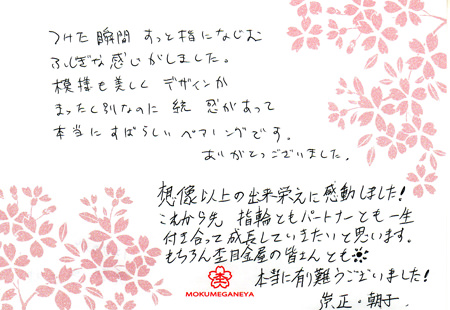 つけた瞬間 すっと指になじむ
ふしぎな感じがしました。
模様も美しく デザインが
まったく別なのに 統一感があって
本当にすばらしい ペアリングです。
ありがとうございました。
想像以上の出来栄えに感動しました!
これから先 指輪ともパートナーとも一生
付き合って成長していきたいと思います。
もちろん杢目金屋の皆さんとも
本当に有り難うございました!
MOKUMEGANEYA
崇正・朝子